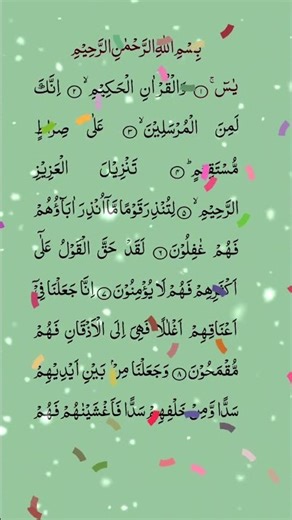 بِسْمِ اللّٰهِ الرَّحْمٰنِ الرَّحِيْمِ
يٰسٓ ۚ ﴿۱﴾ وَالْقُرْاٰنِ الْحَكِيْمِ ۙ ﴿۲﴾ اِنَّكَ
لَمِنَ الْمُرْسَلِيْنَ ۙ ﴿۳﴾ عَلٰى صِرَاطٍ
مُّسْتَقِيْمٍ ؕ ﴿۴﴾ تَنْزِيْلَ الْعَزِيْزِ
الرَّحِيْمِ ۙ ﴿۵﴾ لِتُنْذِرَ قَوْمًا مَّاۤ اُنْذِرَ اٰبَآؤُهُمْ
فَهُمْ غٰفِلُوْنَ ﴿۶﴾ لَقَدْ حَقَّ الْقَوْلُ عَلٰۤى
اَكْثَرِهِمْ فَهُمْ لَا يُؤْمِنُوْنَ ﴿۷﴾ اِنَّا جَعَلْنَا فِيْۤ
اَعْنَاقِهِمْ اَغْلٰلًا فَهِيَ اِلَى الْاَذْقَانِ فَهُمْ
مُّقْمَحُوْنَ ﴿۸﴾ وَجَعَلْنَا مِنْۢ بَيْنِ اَيْدِيْهِمْ
سَدًّا وَّمِنْ خَلْفِهِمْ سَدًّا فَاَغْشَيْنٰهُمْ فَهُمْ